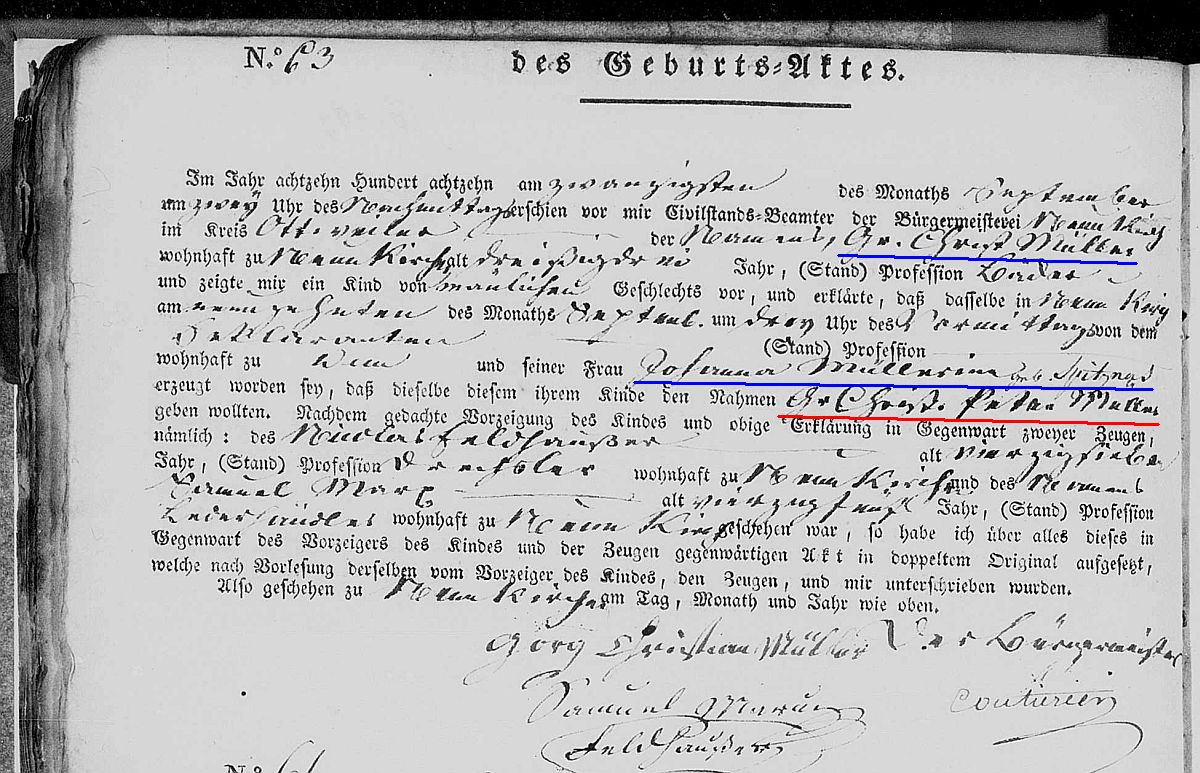 N.º 63 des Geburts-Aktes.
Im Jahr achtzehn Hundert achtzehn am zwanzigsten des Monaths September
um zwey Uhr des Nachmittags erschien vor mir Civilstands-Beamter der Bürgermeisterei Neun Kirch
im Kreis Ottweiler der Namens, Gr. Christ Müller
wohnhaft zu Neun Kirch alt dreißigdrei Jahr, (Stand) Profession Bäcker
und zeigte mir ein Kind von mänlichen Geschlechts vor, und erklärte, daß dasselbe in Neun Kirch
am neun zehnten des Monaths Septemb. um drey Uhr des Vormittags von dem
Deklaranten (Stand) Profession
wohnhaft zu und seiner Frau Johanna Müllerin geb.
erzeugt worden sey, daß dieselbe diesem ihrem Kinde den Nahmen Gr Christ. Peter Müller
geben wollten. Nachdem gedachte Vorzeigung des Kindes und obige Erklärung in Gegenwart zweyer Zeugen,
nämlich: des Nicolas Feldhaußer alt vierzigsieben
Jahr, (Stand) Profession Drechsler wohnhaft zu Neun Kirch und des Namens
Samuel Marx alt Jahr, (Stand) Profession
Lederhändler wohnhaft zu Neun Kirch geschehen war, so habe ich über alles dieses in
Gegenwart des Vorzeigers des Kindes und der Zeugen gegenwärtigen Akt in doppeltem Original aufgesetzt,
welche nach Vorlesung derselben vom Vorzeiger des Kindes, den Zeugen, und mir unterschrieben wurden.
Also geschehen zu Neun Kirchen am Tag, Monath und Jahr wie oben.
Görg Christian Müller Der Bürgermeister
Samuel Couturier
Feldhaußer